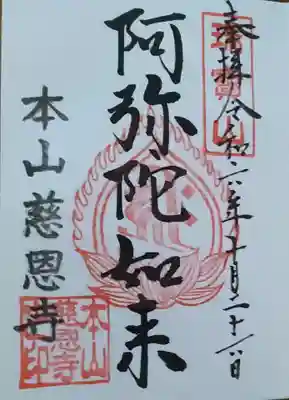 奉拝 令和六年十月二十六日
瑞寳山
阿弥陀如来
本山慈恩寺
本山
慈恩寺